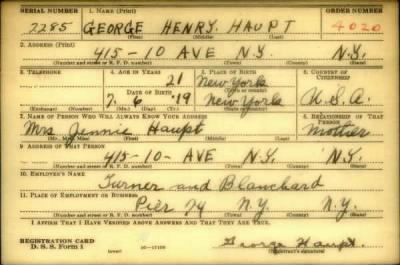 SERIAL NUMBER 1. NAME (Print) ORDER NUMBER
7285 GEORGE HENRY HAUPT 4020
(First) (Middle) (Last)
2. ADDRESS (Print)
415-10 AVE N.Y. N.Y.
(Number and street or R. F. D. number) (Town) (County) (State)
3. TELEPHONE 4. AGE IN YEARS 5. PLACE OF BIRTH 6. COUNTRY OF CITIZENSHIP
21 New York
DATE OF BIRTH (Town or county)
7. 6 '19 New York U.S.A.
(Exchange) (Number) (Mo.) (Day) (Yr.) (State or country)
7. NAME OF PERSON WHO WILL ALWAYS KNOW YOUR ADDRESS 8. RELATIONSHIP OF THAT PERSON
Mrs Jennie Haupt Mother
(Mr., Mrs., Miss) (First) (Middle) (Last)
9. ADDRESS OF THAT PERSON
415-10-AVE N.Y. N.Y.
(Number and street or R. F. D. number) (Town) (County) (State)
10. EMPLOYER'S NAME
Turner and Blanchard
11. PLACE OF EMPLOYMENT OR BUSINESS
Pier 74 N.Y. N.Y.
(Number and street or R. F. D. number) (Town) (County) (State)
I AFFIRM THAT I HAVE VERIFIED ABOVE ANSWERS AND THAT THEY ARE TRUE.
REGISTRATION CARD
D. S. S. Form 1 George Haupt
(Registrant's signature)